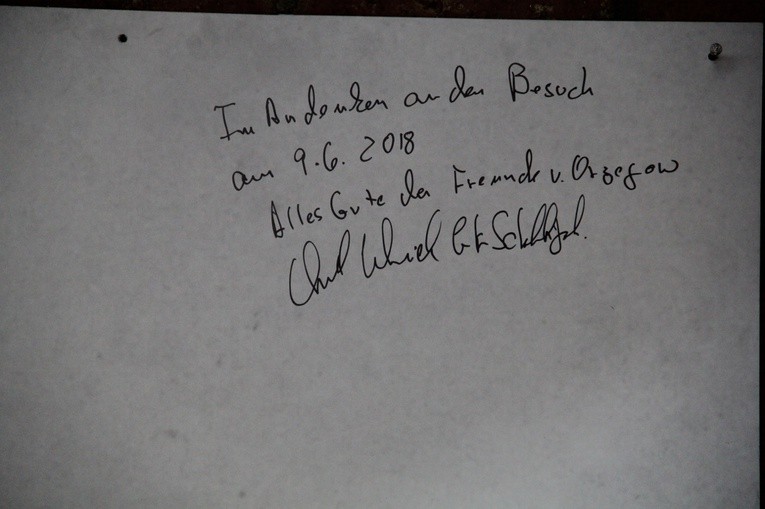 Im Andenken an den Besuch
am 9.6.2018
Alles Gute den Freunde v. Orzegow